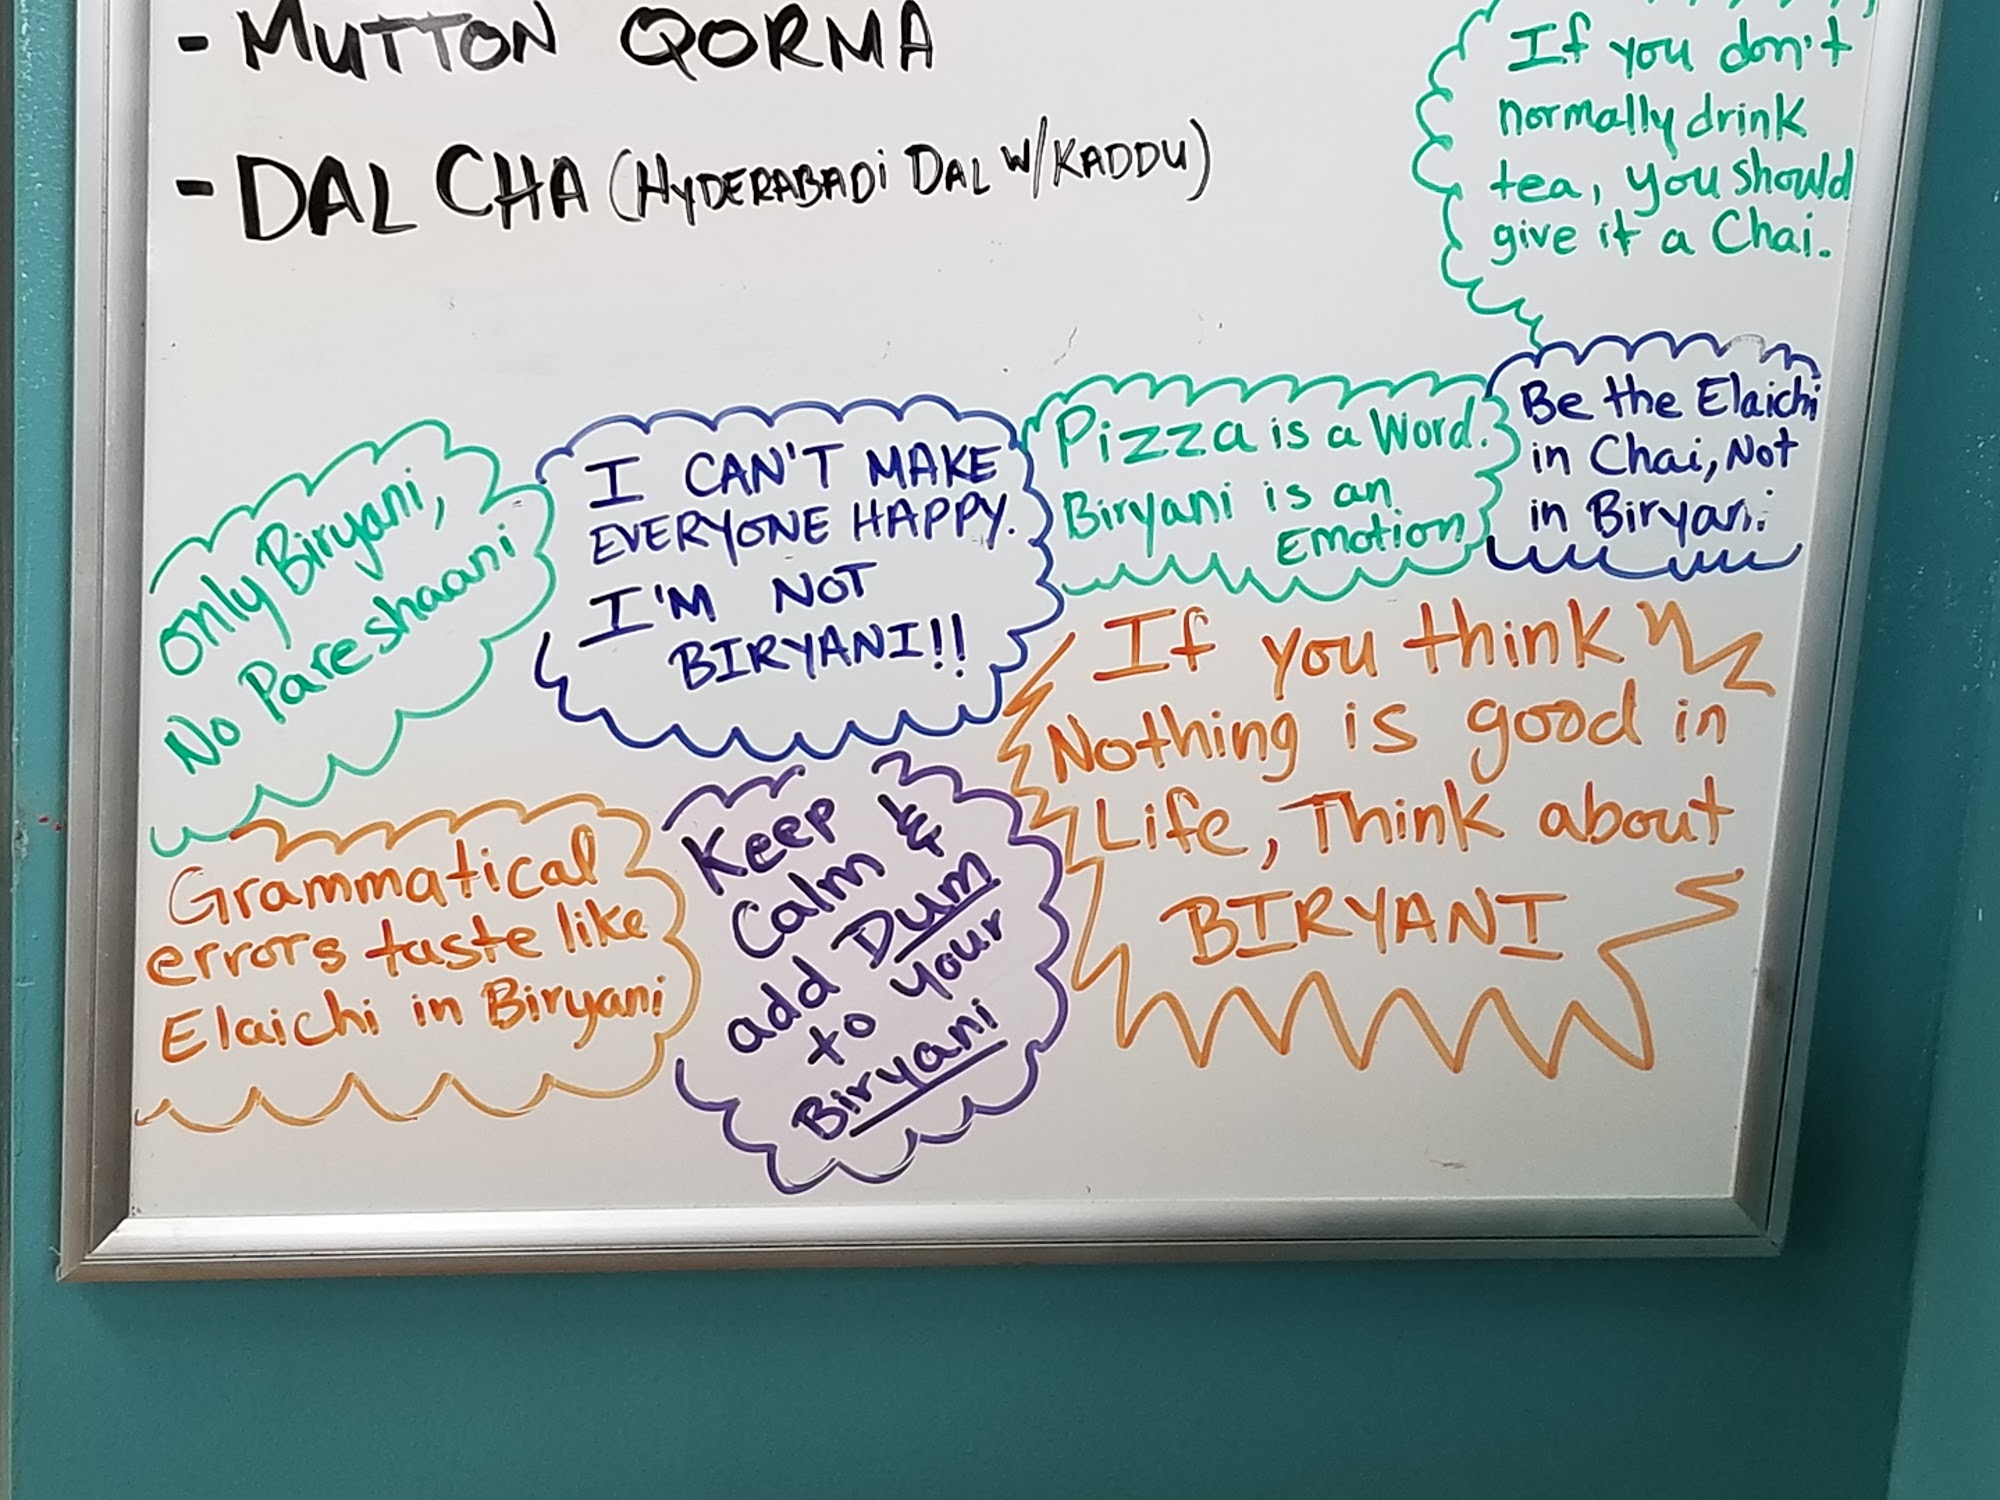 - MUTTON QORMA
- DAL CHA (HYDERABADI DAL W/KADDU)
If you don't
normally drink
tea, you should
give it a Chai.
Only Biryani,
No Pareshaani
I CAN'T MAKE
EVERYONE HAPPY.
I'M NOT
BIRYANI!!
Pizza is a Word.
Biryani is an
Emotion
Be the Elaichi
in Chai, Not
in Biryani
Grammatical
errors taste like
Elaichi in Biryani
Keep
Calm &
add Dum
to your
Biryani
If you think
Nothing is good in
Life, Think about
BIRYANI